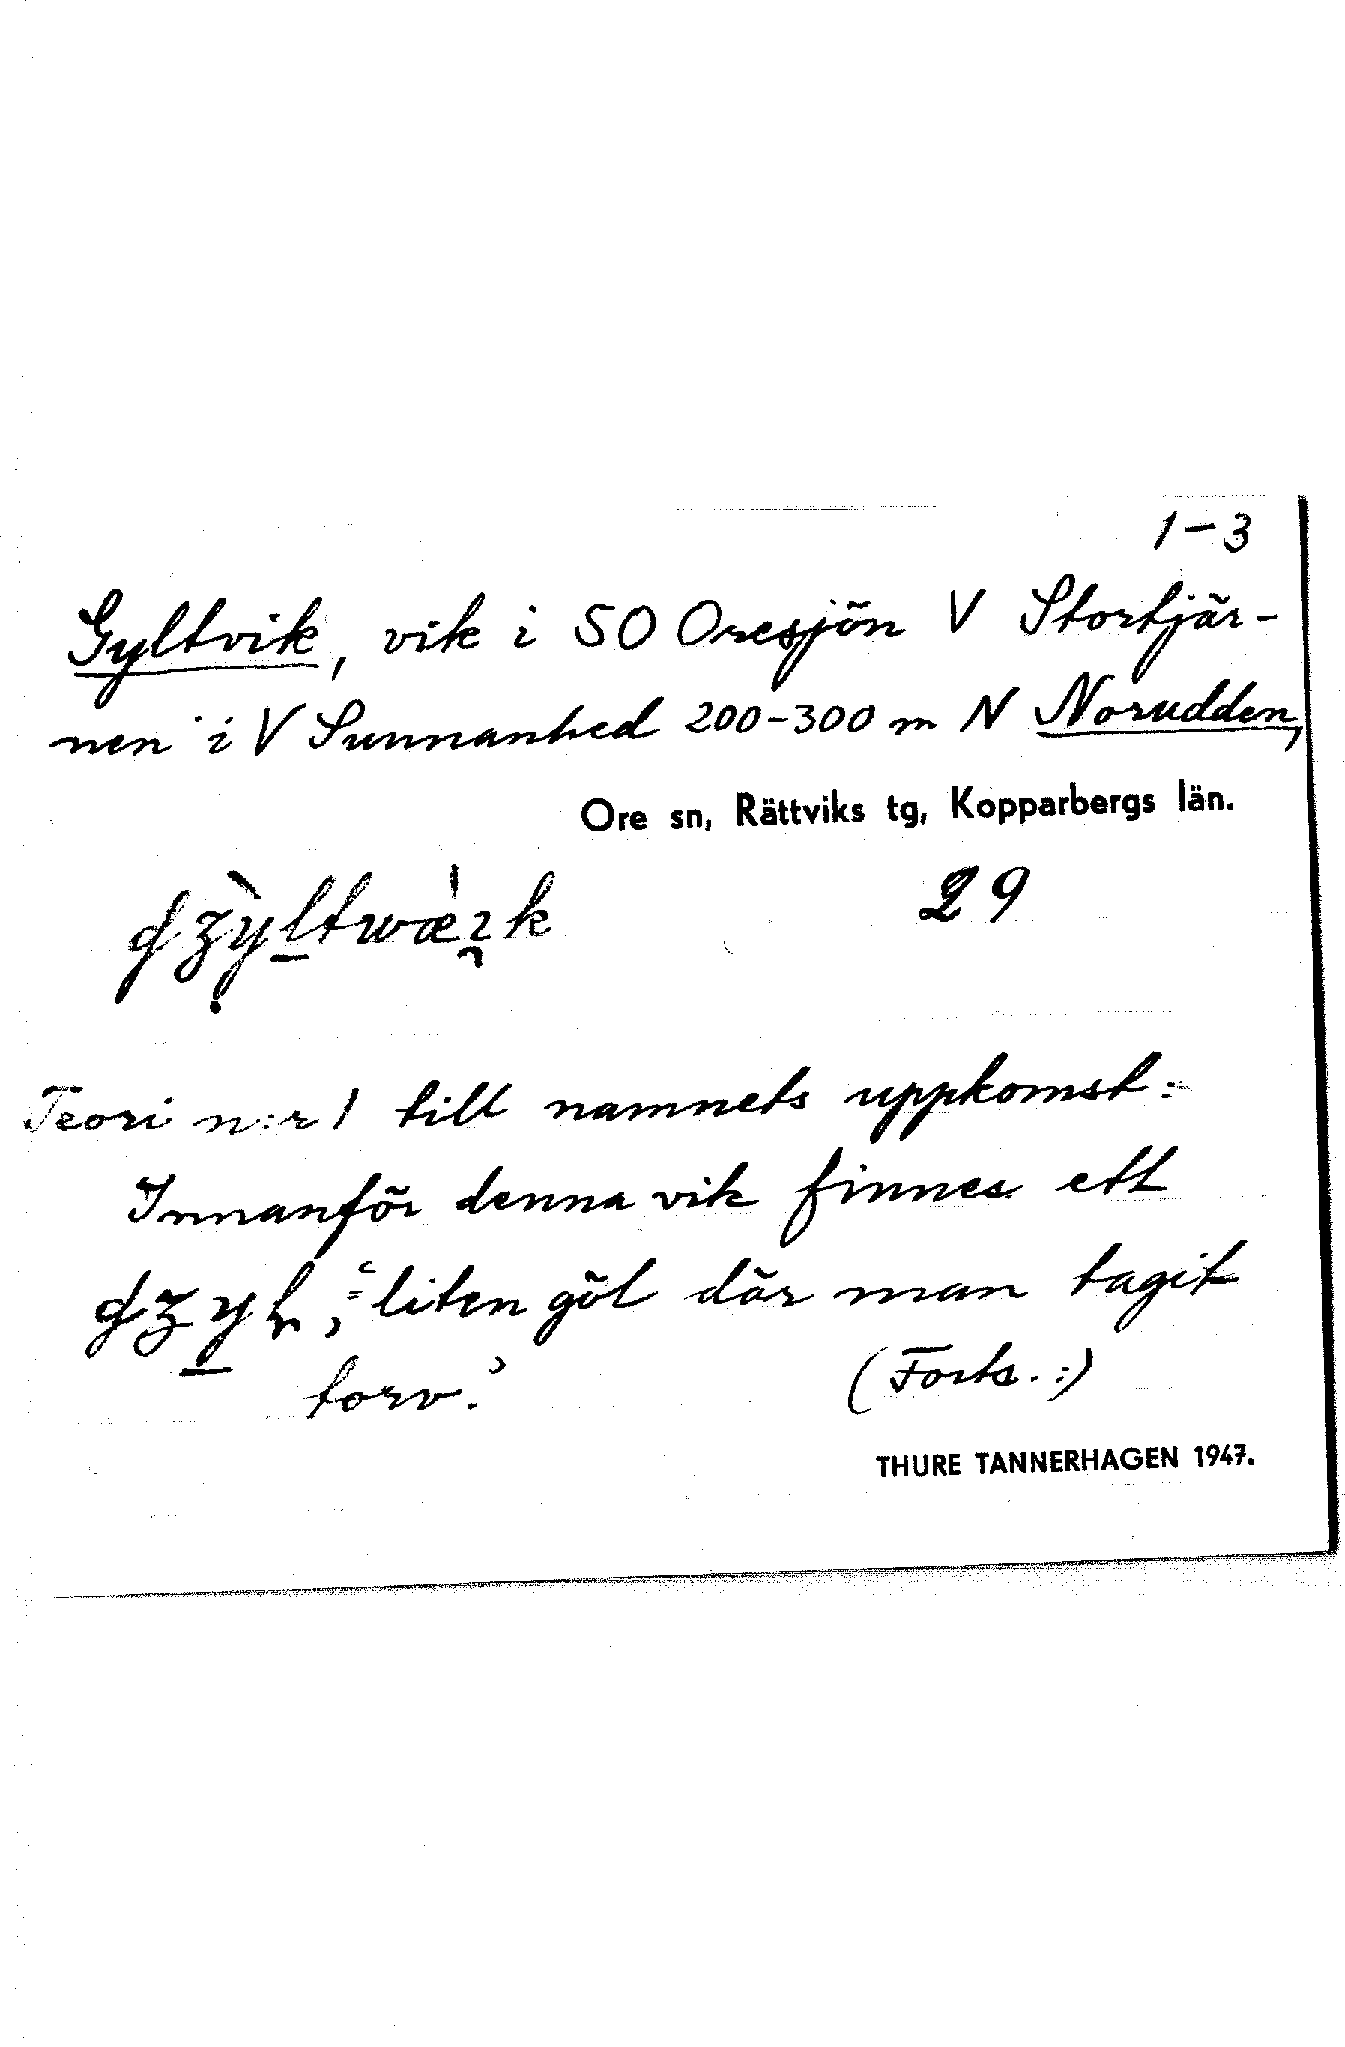 1-3
Gyltvik, vik i SO Oresjön V Stortjär-
nen i V Sunnanhed 200-300 m N Norudden,
Ore sn, Rättviks tg, Kopparbergs län.
29
Teori n:r 1 till namnets uppkomst:
Innanför denna vik finnes ett
liten göl där man tagit
torv.
(Forts.:)
THURE TANNERHAGEN 1947.